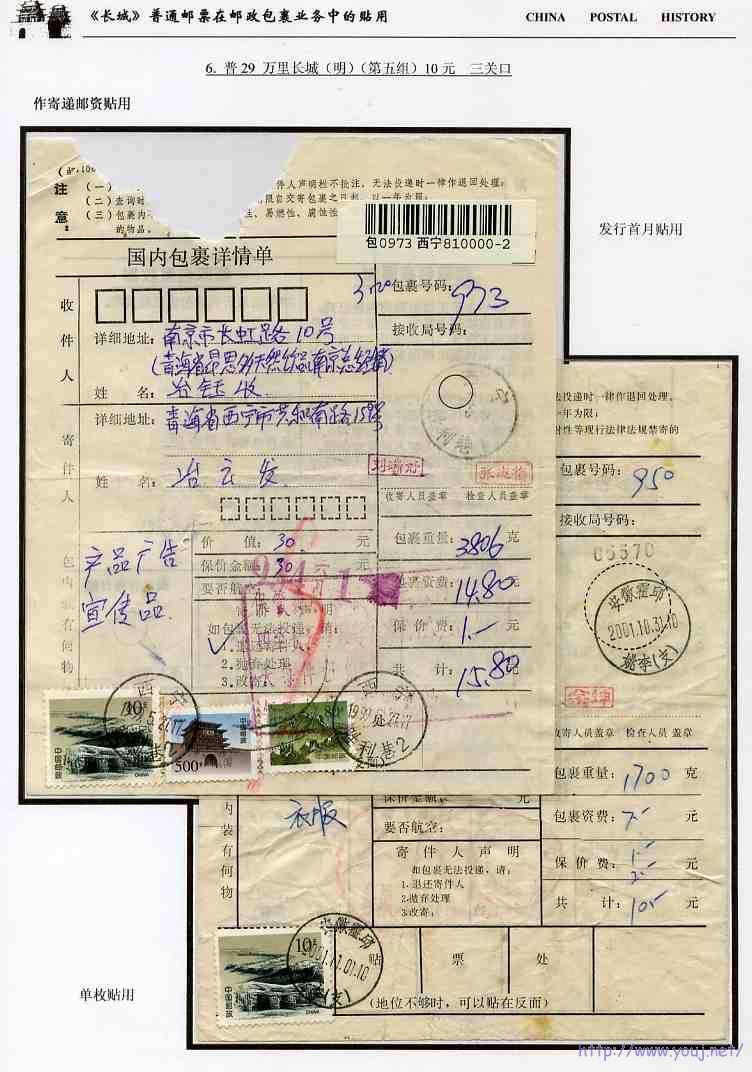 《长城》普通邮票在邮政包裹业务中的贴用
CHINA POSTAL HISTORY
6. 普29 万里长城（明）（第五组）10元 三关口
作寄递邮资贴用
发行首月贴用
注意：
（一）
件人声明栏不批注，无法投递时一律作退回处理；
（二）查询时
限自交寄包裹之日起，以一年为限；
（三）包裹内
易燃性、腐蚀性
的物品。
包0973 西宁810000-2
国内包裹详情单
包裹号码：973
接收局号码：
收件人
详细地址：南京市长虹路10号
姓 名：
寄件人
详细地址：青海省西宁市共和南路15号
姓 名：冶云发
收寄人员盖章 检查人员盖章
价 值：30 元
包裹重量：3806 克
保价金额：30
包裹资费：14.80 元
要否航
保价费：1.- 元
共 计：15.80 元
包内装有何物
产品广告
宣传品
如包裹无法投递，请：
2.抛弃处理
3.改寄：
10元
中国邮政
CHINA
500分
中国邮政
中国邮政
西宁
1999.5.27.17
胜利巷2
投递时一律作退回处理。
年为限；
射性等现行法律法规禁寄的
包裹号码：950
接收局号码：
05570
2001.10.31.10
邮亭(支)
收寄人员盖章 检查人员盖章
包裹重量：1700 克
包裹资费：7.- 元
保价费：1.- 元
2.-
共 计：10.- 元
内装有何物
衣服
保价金额： 元
要否航空：
寄件人声明
如包裹无法投递，请：
1.退还寄件人
2.抛弃处理
3.改寄：
贴 票 处
（地位不够时，可以贴在反面）
10元
中国邮政
CHINA
2001.11.01.10
单枚贴用
http://www.youj.net/